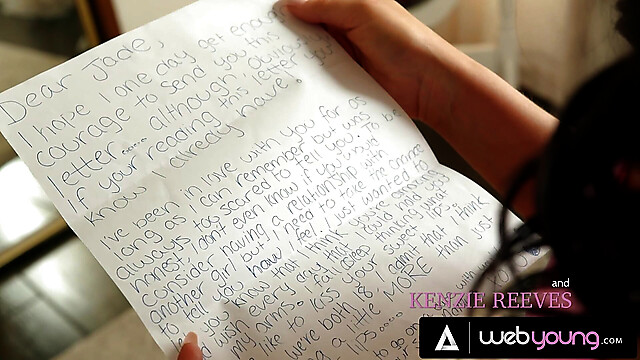 Dear Jade,
I hope I one day get enough
courage to send you this
letter..... although, obviously
if your reading this letter your
know I already have.
I've been in love with you for as
long as I can remember but was
always too scared to tell you. To be
honest, don't even know if you would
consider having a relationship with
another girl but I need to take the chance
to tell you how I feel. I just wanted to
you know that I think you're amazing
wish every day that I could hold you
my arms. fall asleep thinking what
like to kiss your sweet lips..
we're both 8 admit that I think
a little MORE than just
lips.....
and
KENZIE REEVES
webyoung.com